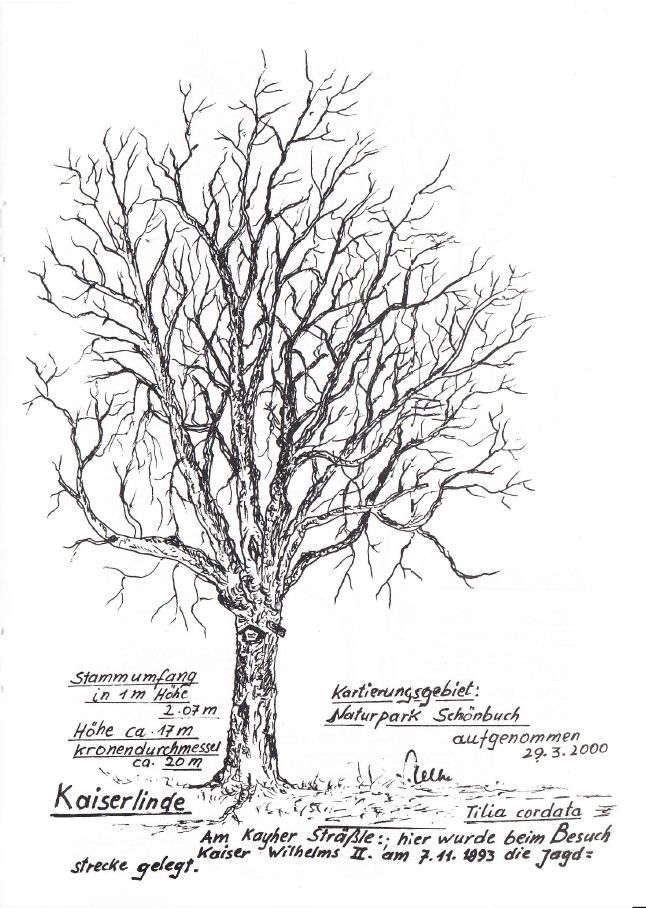 Stammumfang
in 1 m Höhe
2.07 m
Höhe ca. 17 m
Kronendurchmesser
ca. 20 m
Kartierungsgebiet:
Naturpark Schönbuch
aufgenommen
29.3.2000
Kaiserlinde
Tilia cordata
Am Kayher Sträßle:, hier wurde beim Besuch
Kaiser Wilhelms II. am 7.11.1893 die Jagd=
strecke gelegt.